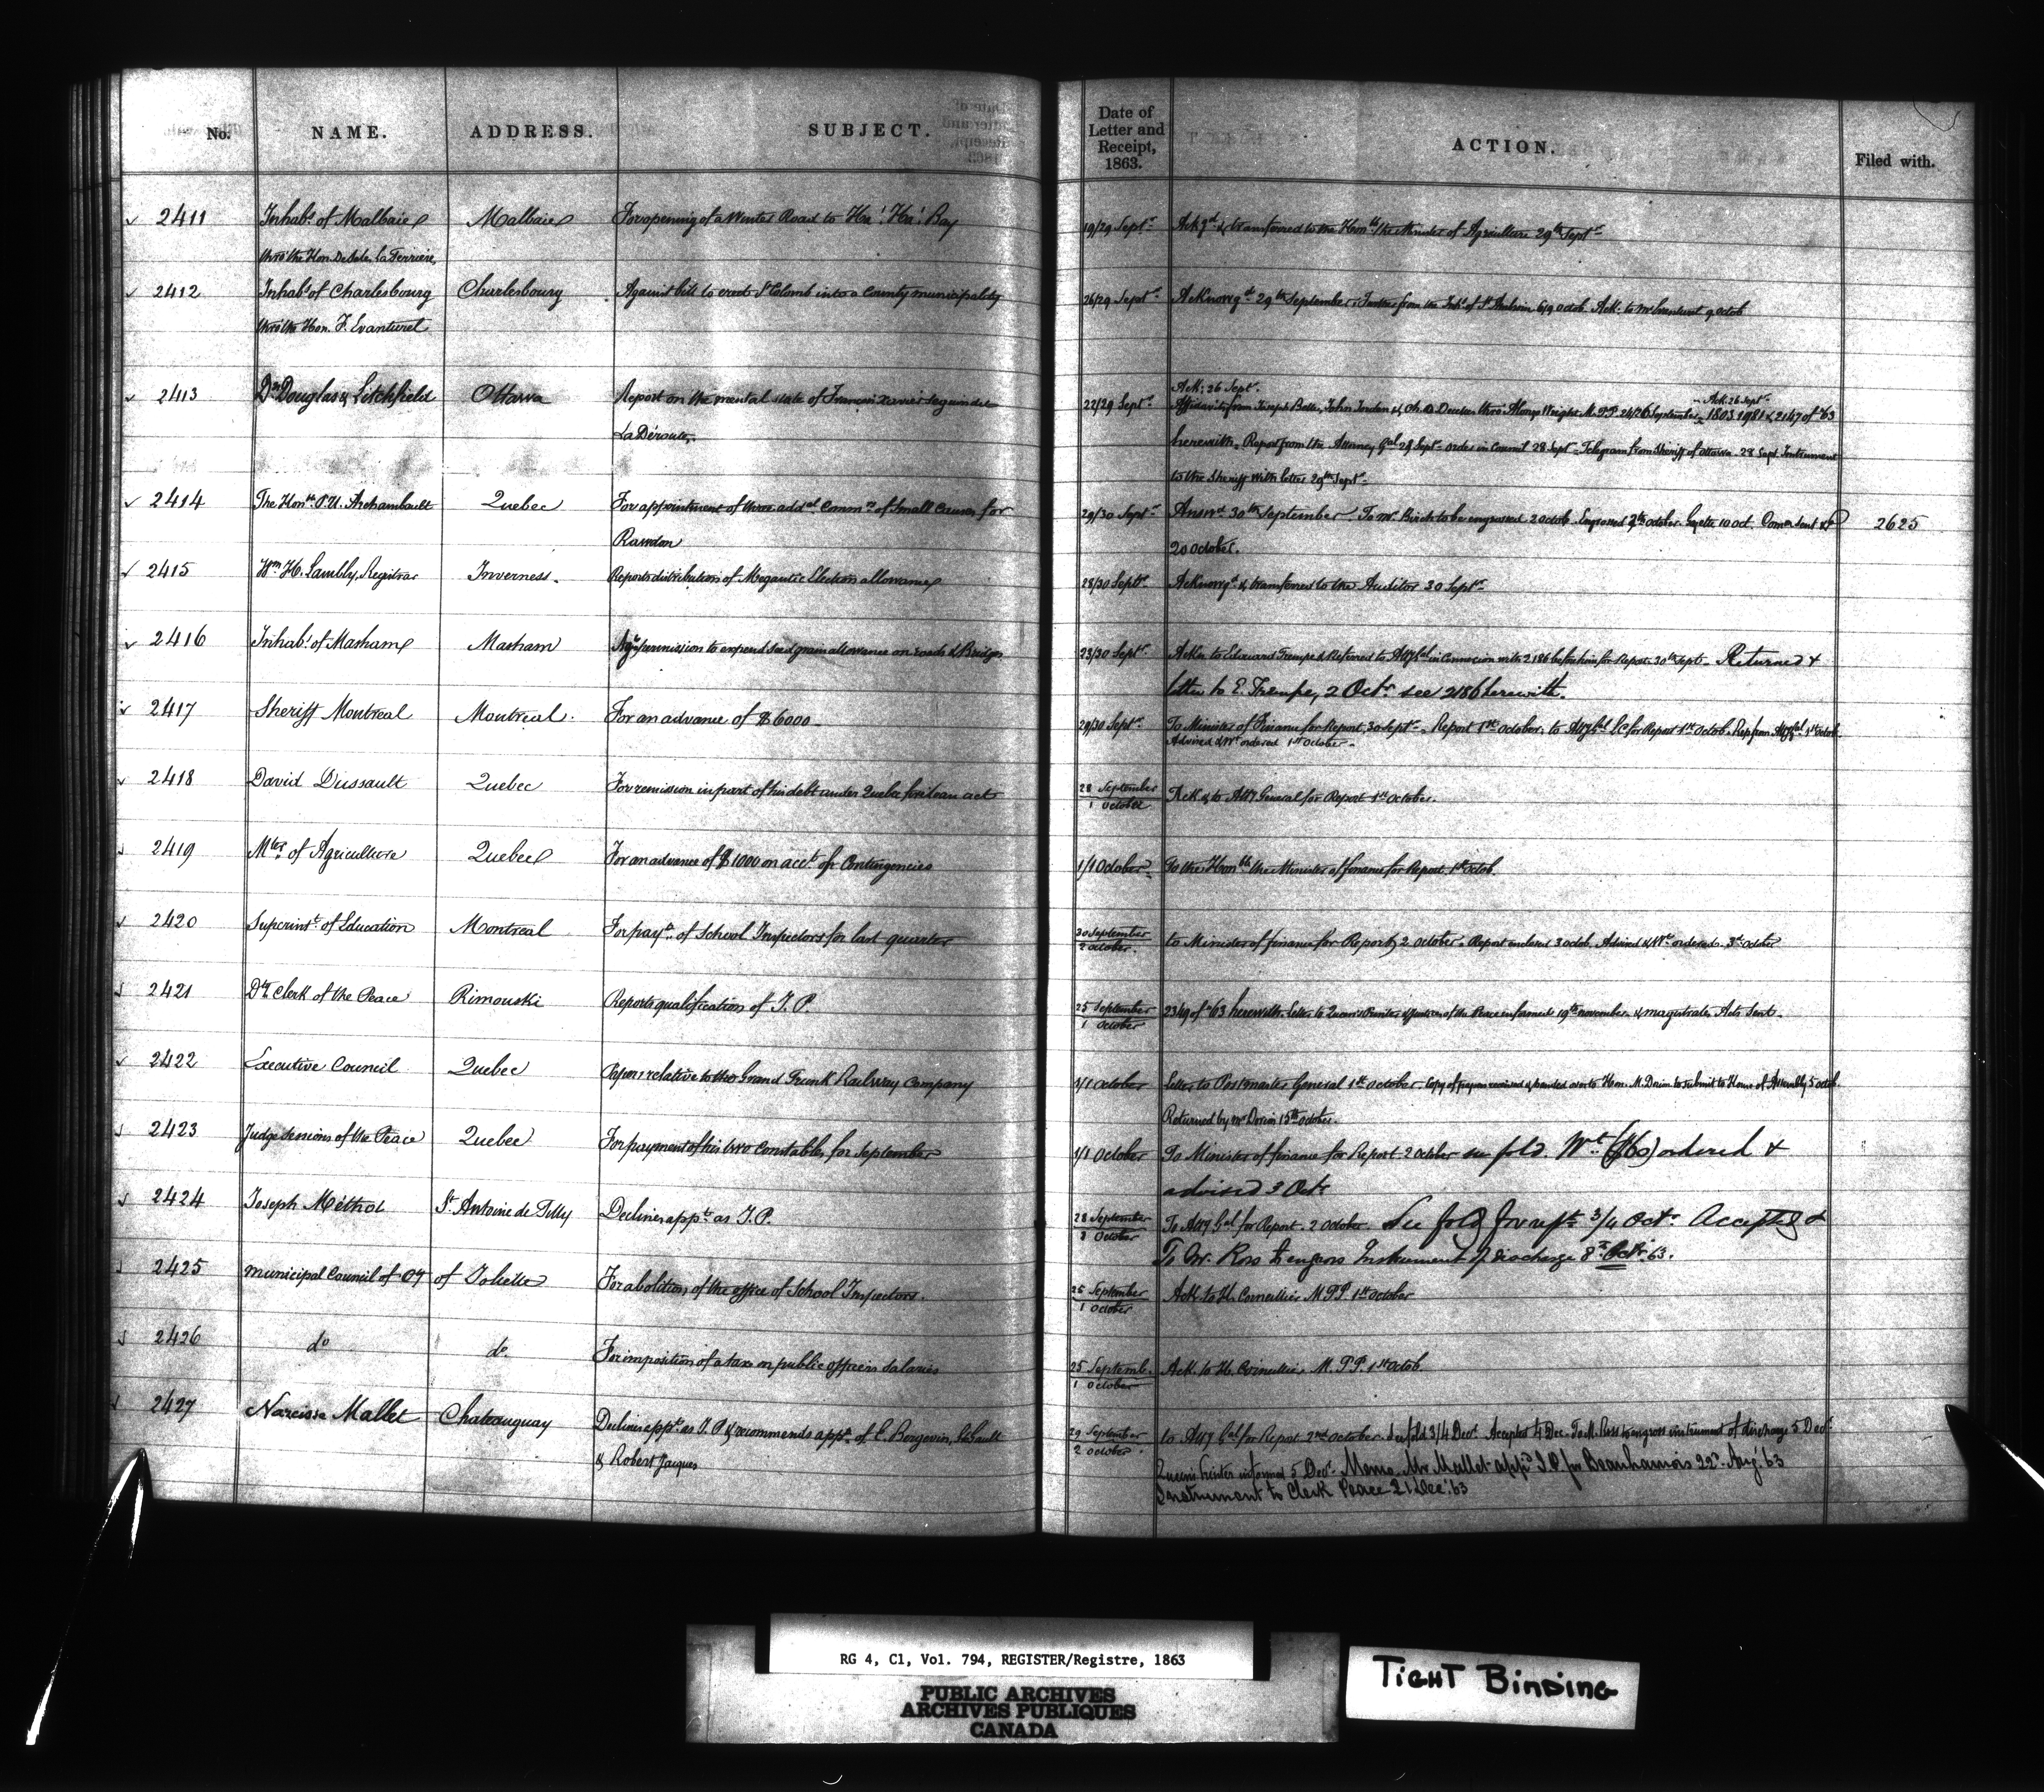 No. NAME. ADDRESS. SUBJECT. Date of Letter and Receipt, 1863. ACTION. Filed with.
2411 Inhabts. of Malbaie Malbaie For opening of a Winter Road to Ha! Ha! Bay 19/29 Septr. Ackgd. & transferred to the Honble the Minister of Agriculture 29th Septr.
thro' the Hon. De Sales La Terrière,
2412 Inhabts of Charlesbourg Charlesbourg Against bill to erect St Colomb into a County municipality 26/29 Septr. Acknowgd. 29th September. from the Inhts of St 6/9 Octob. Ack. to Mr Evanturel 9 Octob
thro' the Hon. F. Evanturel
2413 Drs Douglas & Litchfield Ottawa Report on the mental state of Francois Xavier Seguin dit 22/29 Septr. Ack: 26 Septr.
Affidavits from Joseph John Jordan & Ch. D. thro' Alonzo Wright M.P.P. 24/26 September - Ack. 26 Septr. - 1803 2981 & 2147 of '63
La Déroute. herewith. Report from the Attorney Gal 29 Septr. Order in Council 28 Septr. Telegram from Sheriff of Ottawa. 28 Sept. Instrument
to the Sheriff with letter 29th Septr.
2414 The Honble. P.U. Archambault Quebec For appointment of three addal. Commrs of Small Causes for 29/30 Septr. Answd. 30th September. To Mr. Birch to be engrossed 2 Octob. Engrossed 7th October. Gazette 10 Oct. Comon Sent 2625
Rawdon 20 October.
2415 Wm. H. Lambly, Registrar Inverness. Reports distribution of Megantic Election allowance 28/30 Septr. Acknowgd. & transferred to the Auditor 30 Septr.
2416 Inhabts. of Masham Masham permission to expend seed grain allowance on roads & Bridges 23/30 Septr. Ackn. to Edward Trempe & Referred to Atty Gal in Connexion with 2186 before him for Report. 30th Septr. Returned &
letter to E. Trempe, 2 Octr. see 2186 herewith.
2417 Sheriff Montreal Montreal. For an advance of $6000 29/30 Septr. To Minister of Finance for Report, 30 Septr. Report 1st October, to Atty Gal LC for Report 1st Octob. Rep from Atty Gal 1st Octob
Advised & Wt ordered 1st October.
2418 David Dussault Quebec For remission in part of his debt under Quebec fire loan act 28 September / 1 October Ack & to Atty General for Report 1st October.
2419 Mter of Agriculture Quebec For an advance of $1000 on acct. of Contingencies 1/1 October To the Honble the Minister of finance for Report. 1st Octob.
2420 Superintt. of Education Montreal For payt. of School Inspectors for last quarter 30 September / 2 October. to Minister of finance for Report, 2 October. Report enclosed 3 Octob. Advised & Wt. ordered. 3d October
2421 Dty. Clerk of the Peace Rimouski Reports qualification of J. P. 25 September / 1 October 2349 of '63 herewith. Letter to Queen's Printer & Justices of the Peace informed 19th November. & magistrates Acts Sent.
2422 Executive Council Quebec Papers relative to the Grand Trunk Railway Company 1/1 October Letter to Postmaster General 1st October. Copy of papers received & handed over to Hon. M. Dorion to submit to House of Assembly 5 octob.
Returned by Mr Dorion 15th October.
2423 Judge Sessions of the Peace Quebec For payment of his two Constables, for September 1/1 October To Minister of finance for Report 2 October see fold. Wt. ($60) ordered &
advised 3 Octr
2424 Joseph Méthot St. Antoine de Tilly Declines appt. as J.P. 28 September / 2 October To Atty Gal for Report. 2 October. See fold for rept. 3/4 Octr. Accepted &
To Mr. Ross to engross Instrument of discharge 8th Octr. 63.
2425 Municipal Council of Cy of Joliette For abolition of the office of School Inspectors. 25 September / 1 October Ack to H. Cornellier M.P.P. 1st October
2426 do do. For imposition of a tax on public officers salaries 25 Septemb. / 1 October Ack. to H. Cornellier M.P.P. 1st Octob.
2427 Narcisse Mallet Chateauguay Declines appt. as J.P. & recommends appt. of E. Bergevin, 29 September / 2 October. to Atty Gal for Report 2nd October. See fold 3/4 Decr. Accepted 4 Dec. To M. Ross to engross instrument of discharge 5 Decr.
& Robert Jacques Queen's Printer informed 5 Decr. Memo. Mr Mallet appd J.P. for Beauharnois 22d. Aug. '63
Instrument to Clerk Peace 21 Dec. '63
RG 4, C1, Vol. 794, REGISTER/Registre, 1863
PUBLIC ARCHIVES
ARCHIVES PUBLIQUES
CANADA
TIGHT BINDING